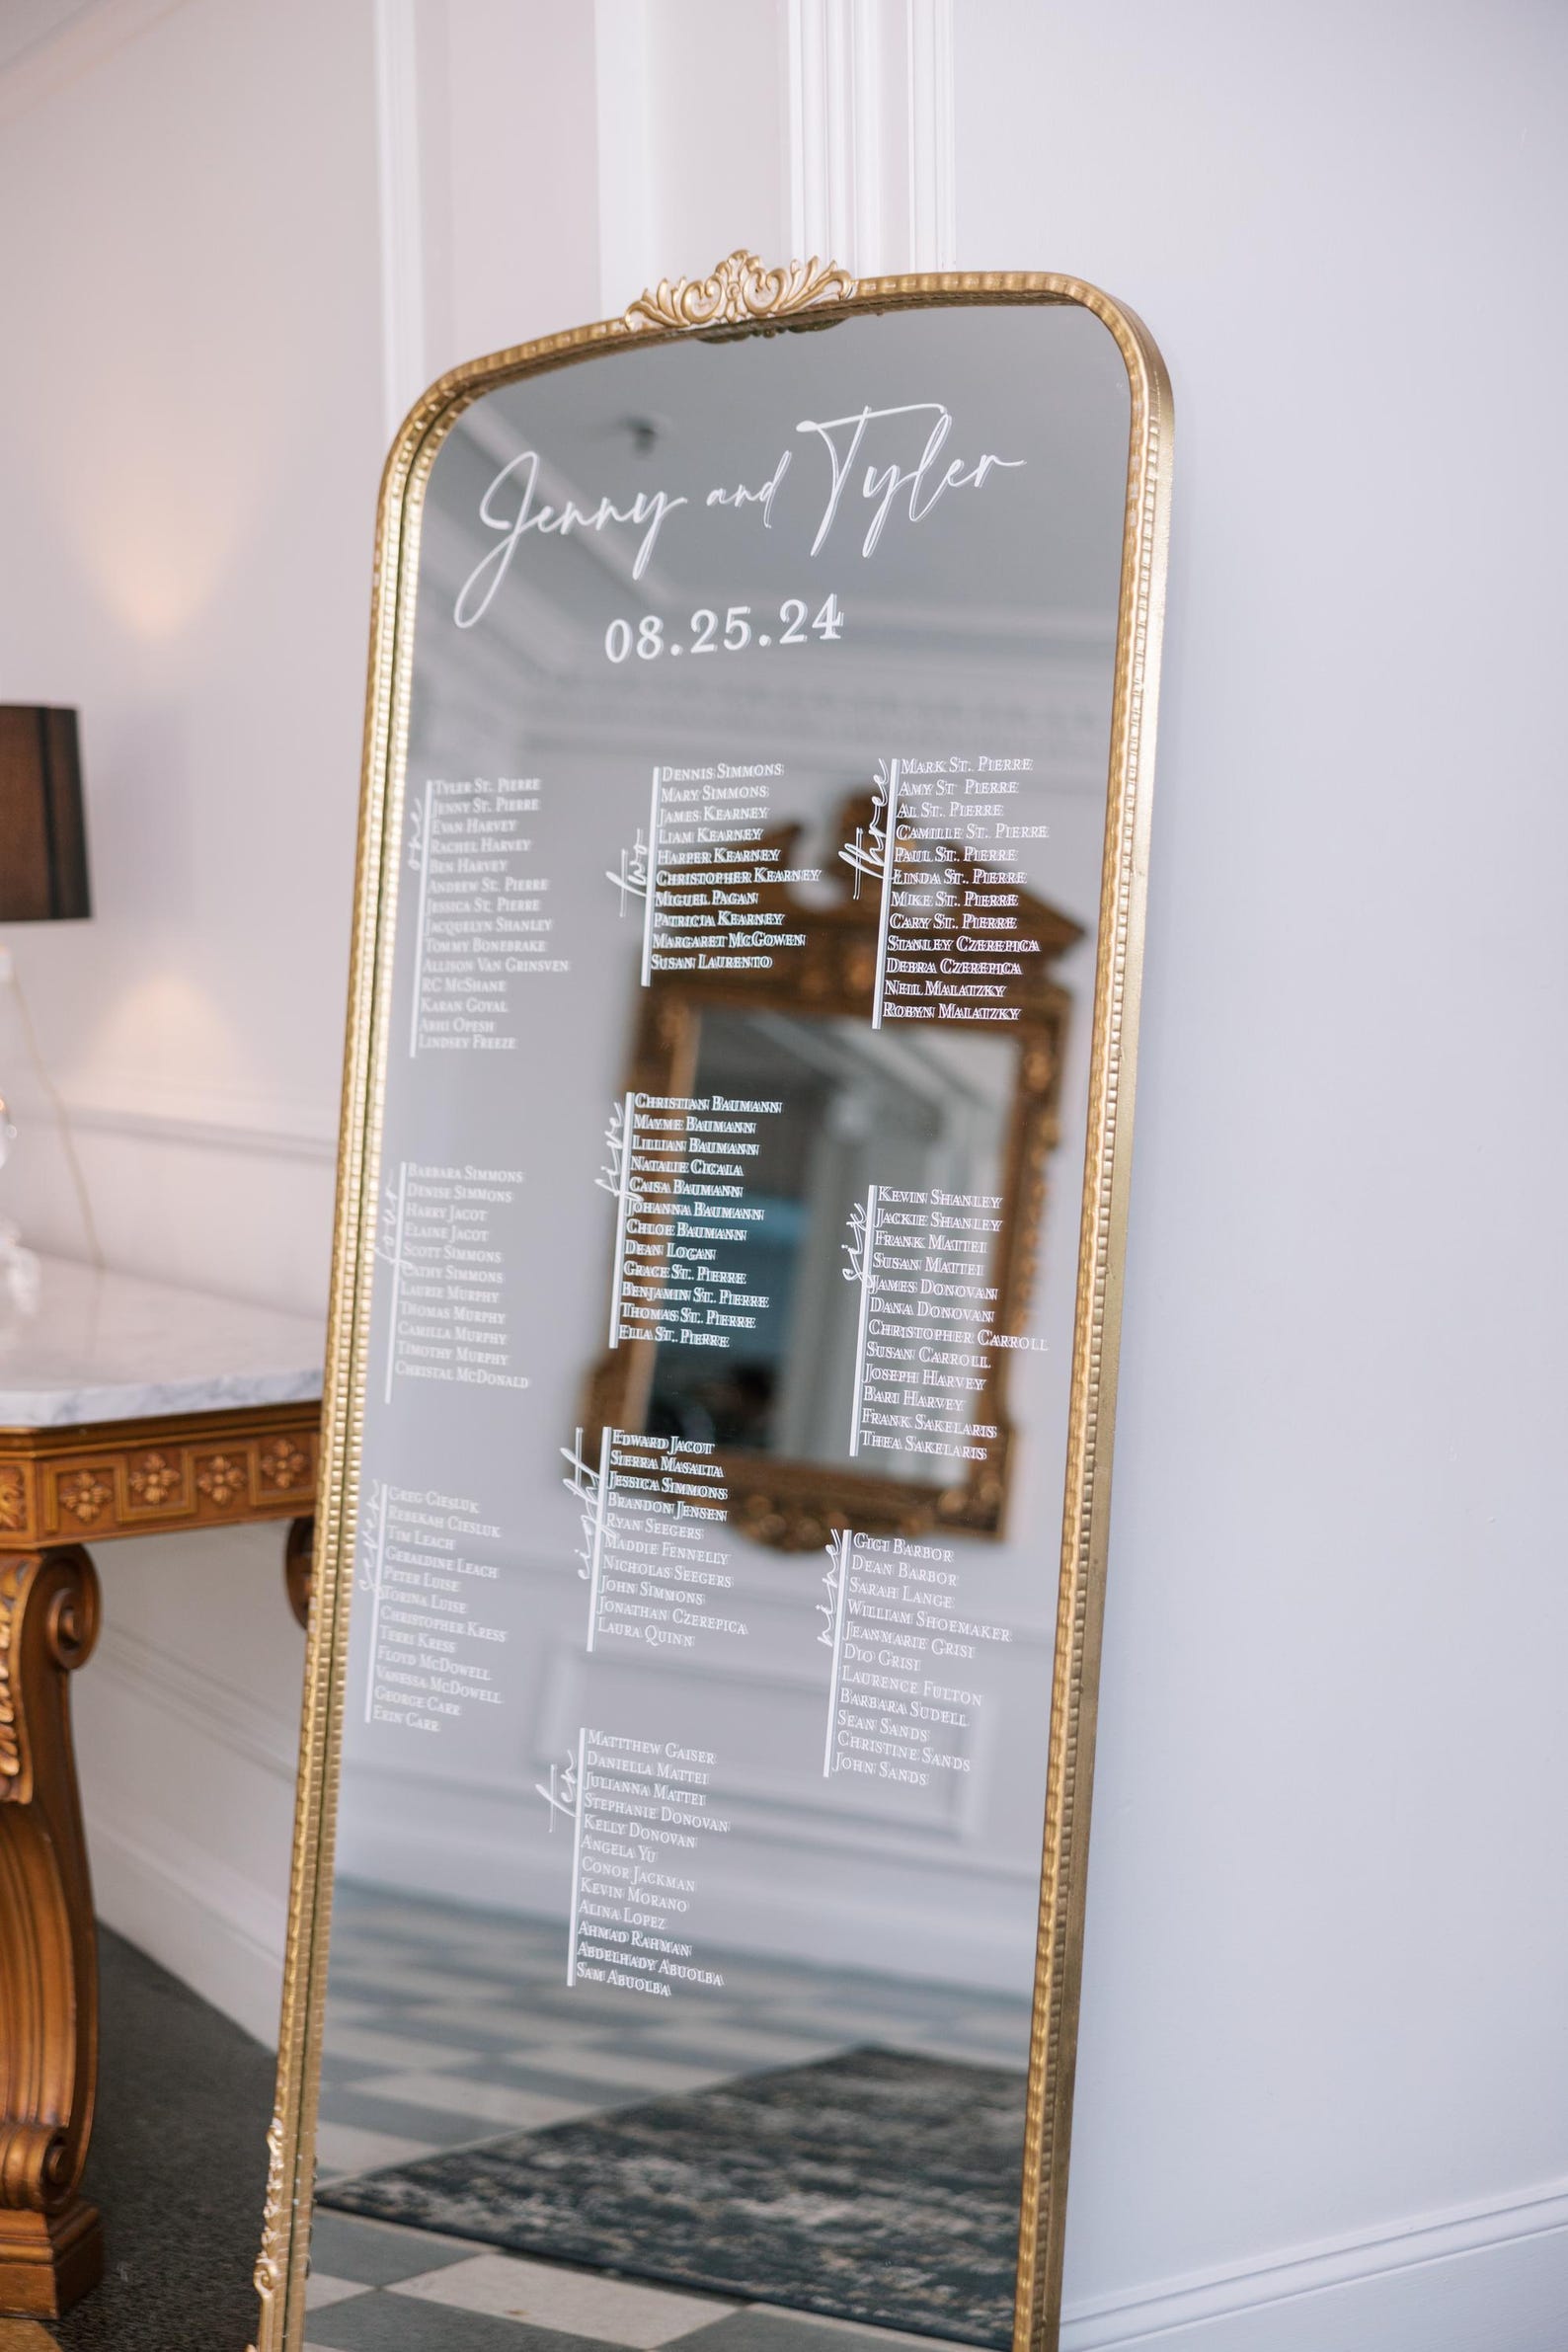 Jenny and Tyler
08.25.24
one
Tyler St. Pierre
Jenny St. Pierre
Evan Harvey
Rachel Harvey
Ben Harvey
Andrew St. Pierre
Jessica St. Pierre
Jacquelyn Shanley
Tommy Bonebrake
Allison Van Grinsven
RC McShane
Karan Goyal
Abhi Opesh
Lindsey Freeze
two
Dennis Simmons
Mary Simmons
James Kearney
Liam Kearney
Harper Kearney
Christopher Kearney
Miguel Pagan
Patricia Kearney
Margaret McGowen
Susan Laurento
three
Mark St. Pierre
Amy St Pierre
Al St. Pierre
Camille St. Pierre
Paul St. Pierre
Linda St. Pierre
Mike St. Pierre
Cary St. Pierre
Stanley Czerepica
Debra Czerepica
Neil Malatzky
Robyn Malatzky
four
Barbara Simmons
Denise Simmons
Harry Jacot
Elaine Jacot
Scott Simmons
Cathy Simmons
Laurie Murphy
Thomas Murphy
Camilla Murphy
Timothy Murphy
Christal McDonald
five
Christian Baumann
Mayme Baumann
Lillian Baumann
Natalie Cicala
Caisa Baumann
Johanna Baumann
Chloe Baumann
Dean Logan
Grace St. Pierre
Benjamin St. Pierre
Thomas St. Pierre
Ella St. Pierre
six
Kevin Shanley
Jackie Shanley
Frank Mattei
Susan Mattei
James Donovan
Dana Donovan
Christopher Carroll
Susan Carroll
Joseph Harvey
Bari Harvey
Frank Sakelaris
Thea Sakelaris
seven
Greg Ciesluk
Rebekah Ciesluk
Tim Leach
Geraldine Leach
Peter Luise
Torina Luise
Christopher Kress
Terri Kress
Floyd McDowell
Vanessa McDowell
George Carr
Erin Carr
eight
Edward Jacot
Sierra Masalta
Jessica Simmons
Brandon Jensen
Ryan Seegers
Maddie Fennelly
Nicholas Seegers
John Simmons
Jonathan Czerepica
Laura Quinn
nine
Gigi Barbor
Dean Barbor
Sarah Lange
William Shoemaker
Jeanmarie Grisi
Dio Grisi
Laurence Fulton
Barbara Sudell
Sean Sands
Christine Sands
John Sands
ten
Mattthew Gaiser
Daniella Mattei
Julianna Mattei
Stephanie Donovan
Kelly Donovan
Angela Yu
Conor Jackman
Kevin Morano
Alina Lopez
Ahmad Rahman
Abdelhady Abuolba
Sam Abuolba